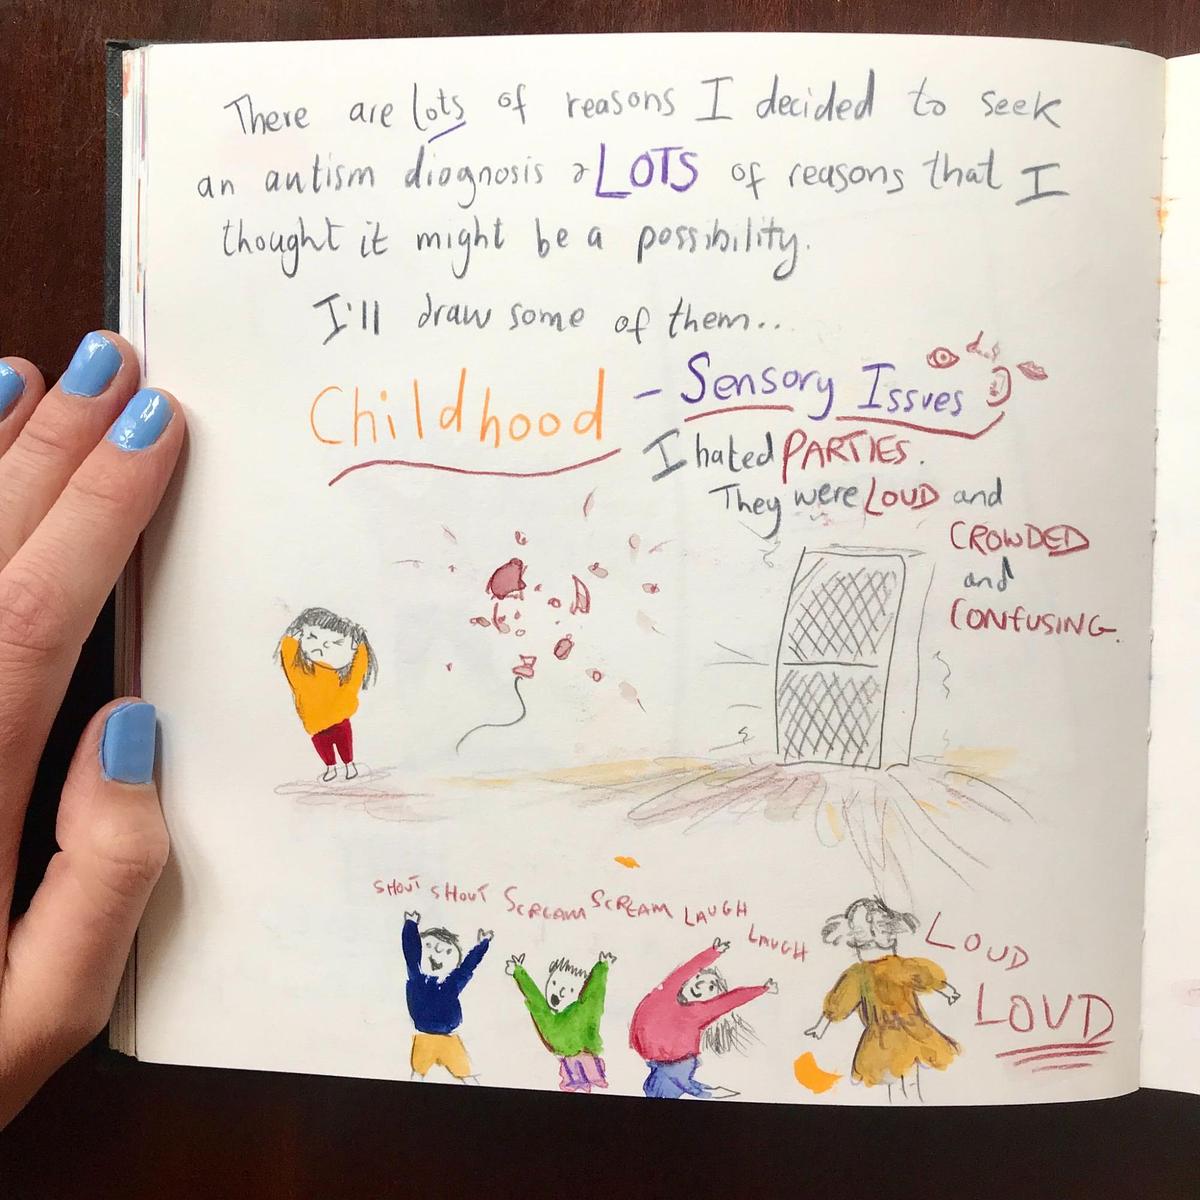 There are lots of reasons I decided to seek
an autism diagnosis & LOTS of reasons that I
thought it might be a possibility.
I'll draw some of them..
Childhood - Sensory Issues
I hated PARTIES.
They were LOUD and
CROWDED
and
CONFUSING.
SHOUT SHOUT SCREAM SCREAM LAUGH
LAUGH
LOUD
LOUD